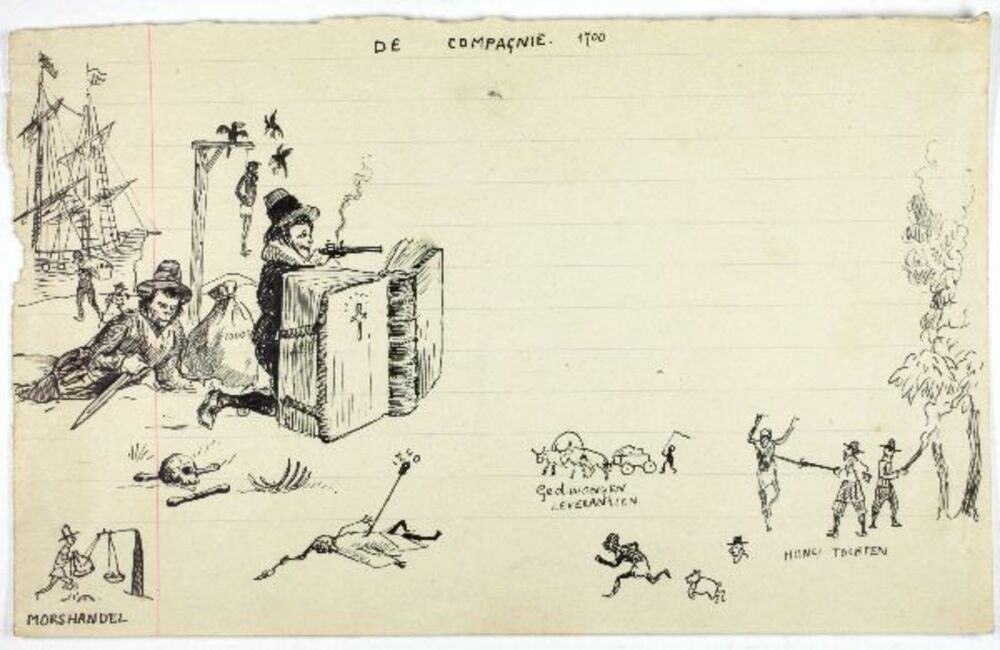 DE COMPAGNIE. 1700
Gedwongen
LEVERANTIËN
HONGI TOCHTEN
MORSHANDEL